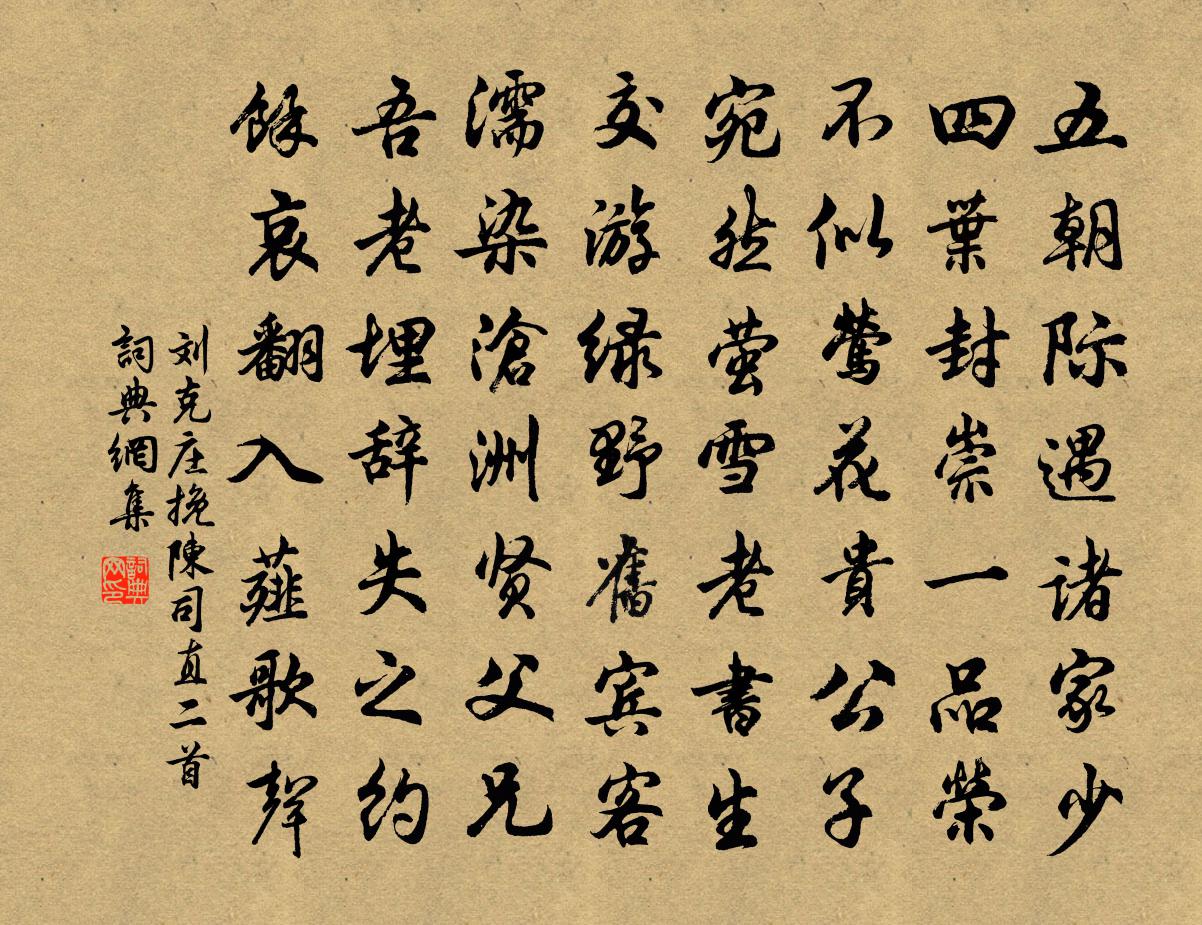 五朝际遇诸家少
四葉封崇一品榮
不似鶯花貴公子
宛然萤雪老書生
交游绿野舊宾客
濡染滄洲贤父兄
吾老埋辞失之约
餘哀翻入薤歌聲
刘克庄挽陳司直二首
詞典網集
詞典网印